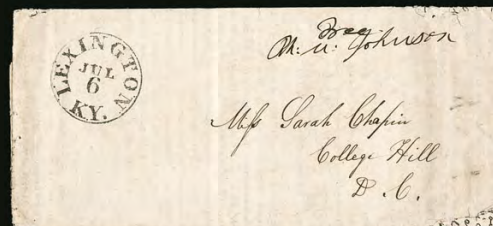 LEXINGTON
JUL
6
KY.
Free
M. U. Johnson
Miss Sarah Chapin
College Hill
D. C.